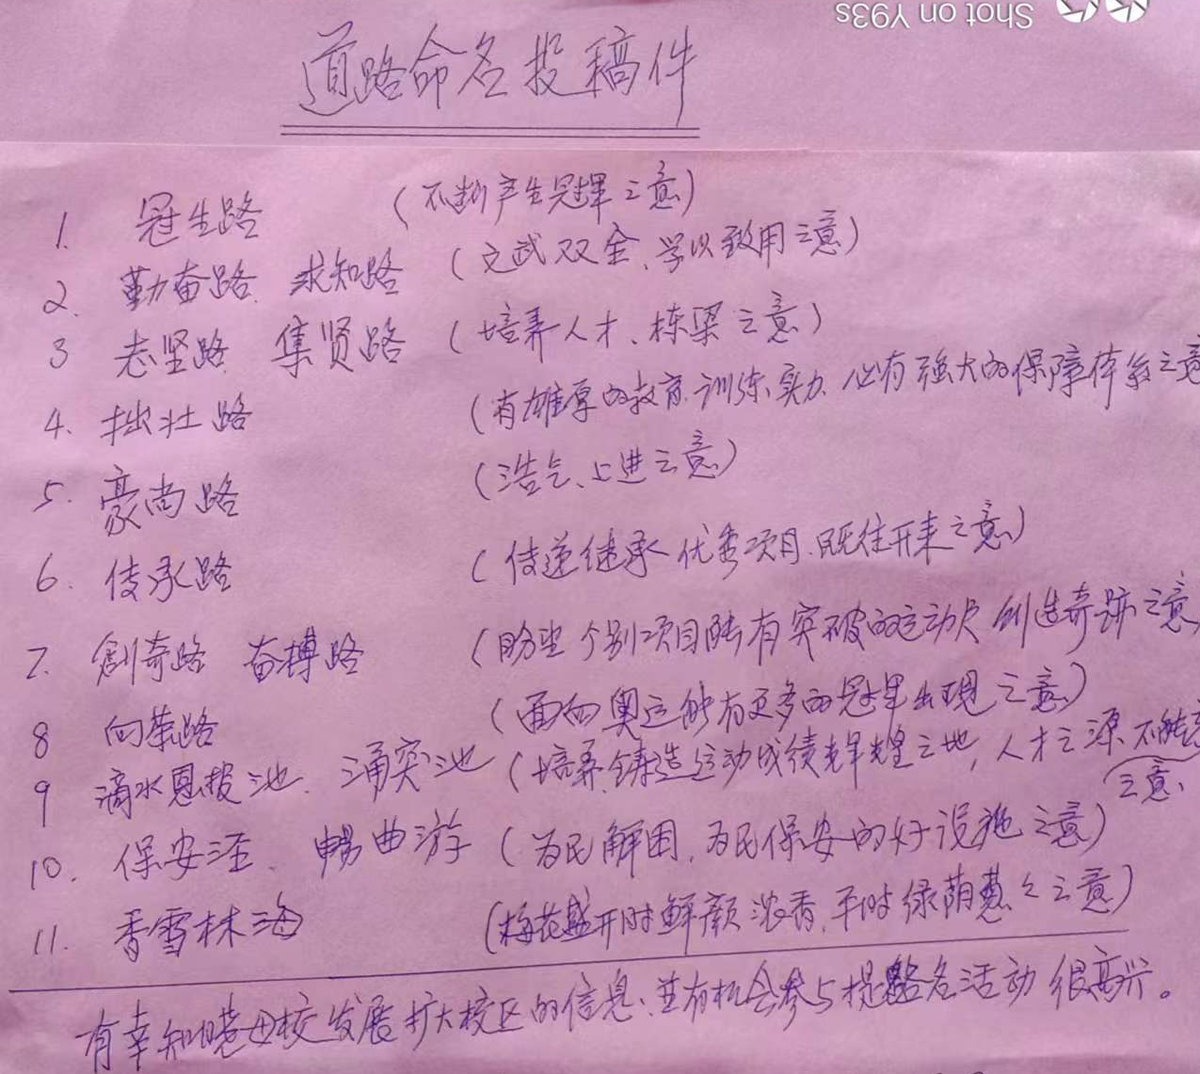 Shot on Y93s
道路命名投稿件
1. 冠生路 (不断产生冠军之意)
2. 勤奋路、求知路 (文武双全、学以致用之意)
3 志坚路 集贤路 (培养人才、栋梁之意)
4. 拙壮路 (有雄厚的教育、训练实力 必有强大的保障体系之意
5. 豪尚路 (浩气、上进之意)
6. 传承路 (传递继承优秀项目、既往开来之意)
7. 創奇路 奋搏路 (盼望个别项目能有突破的运动员创造奇跡之意
8 向荣路 (面向奥运能有更多的冠军出现之意)
9 滴水恩报池、涌突池 (培养铸造运动成绩辉煌之地，人才之源 不能忘
之意、
10. 保安泾、畅曲游 (为民解困，为民保安的好设施之意)
11. 香雪林海 (梅花盛开时鲜颜浓香,平时绿荫葱々之意)
有幸知晓母校发展扩大校区的信息、并有机会参与提路名活动 很高兴。